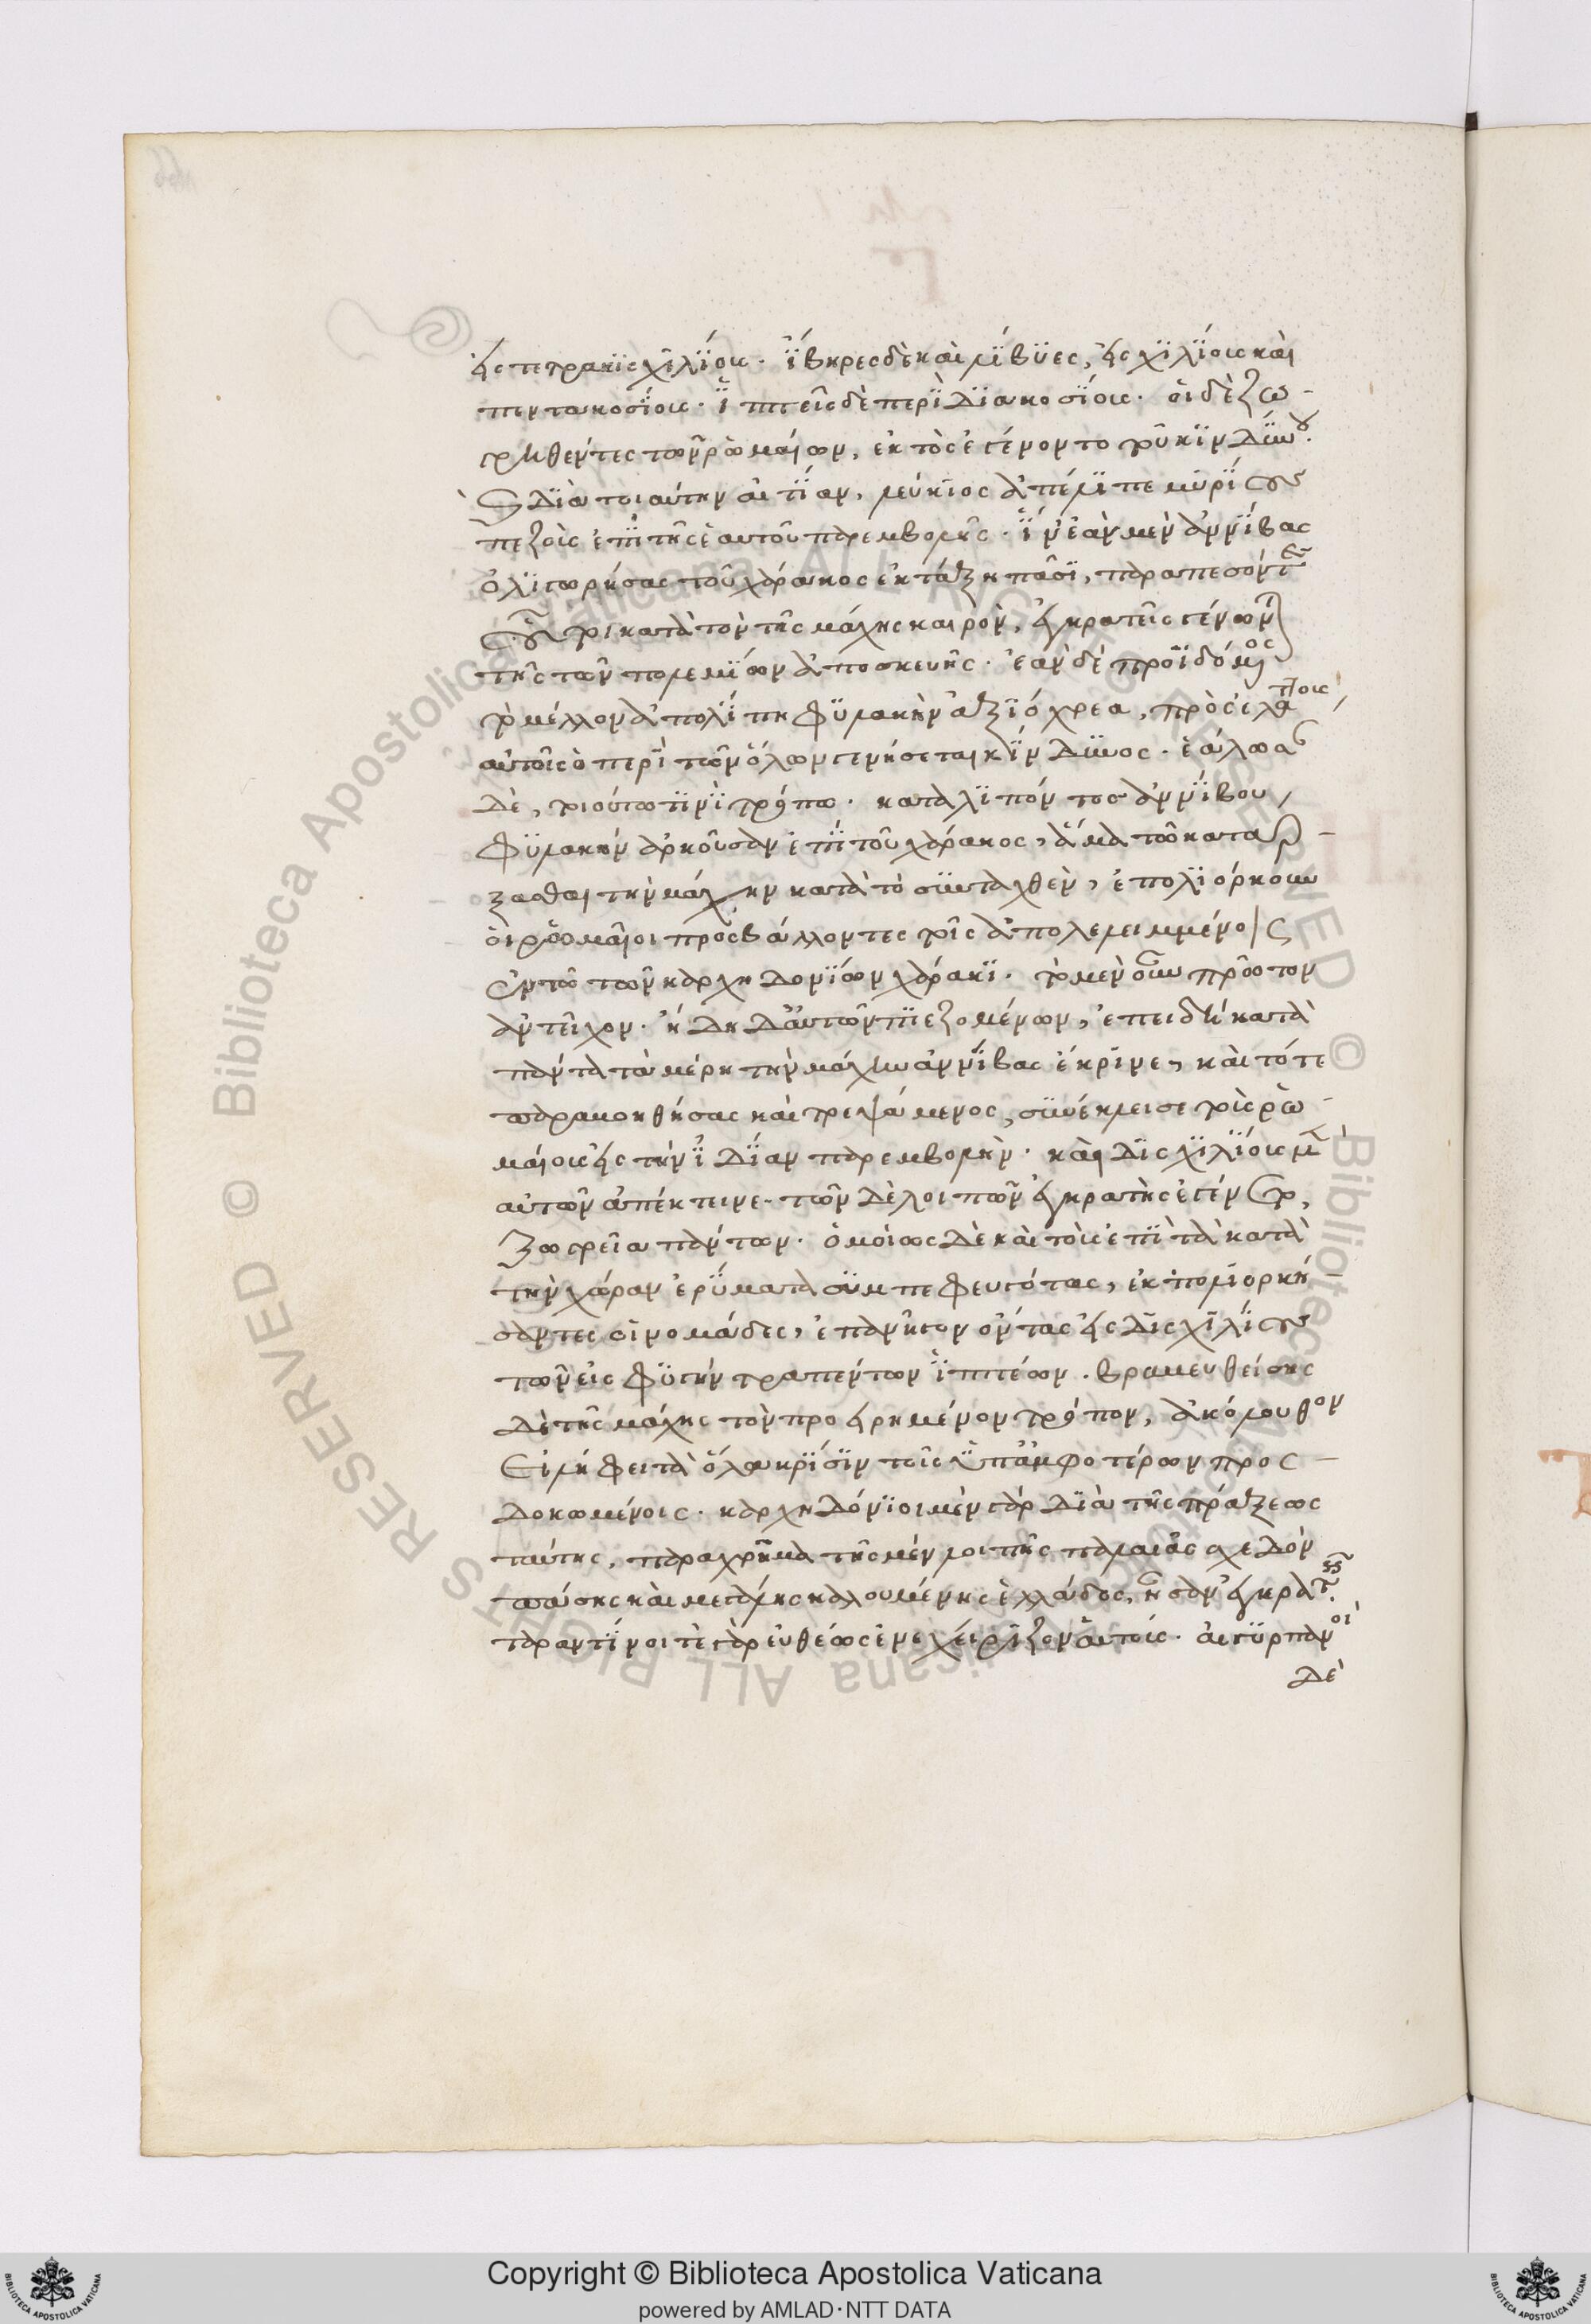 εἰς τετρακισχιλίους. ἴβηρες δὲ καὶ λίβυες, εἰς χιλίους καὶ
πεντακοσίους. ἱππεῖς δὲ περὶ διακοσίους. οἱ δὲ ζω-
γρηθέντες τῶν ῥωμαίων, ἐκτὸς ἐγένοντο τοῦ κινδύνου.
διὰ τοιαύτην αἰτίαν, λεύκιος ἀπέλιπε μυρίους
πεζοὺς ἐπὶ τῆς ἑαυτοῦ παρεμβολῆς. ἵν' ἐὰν μὲν ἀννίβας
ὀλιγωρήσας τοῦ χάρακος ἐκτάξη πᾶσι, παραπεσόντες
οὗτοι κατὰ τὸν τῆς μάχης καιρὸν, ἐγκρατεῖς γένωνται
τῆς τῶν πολεμίων ἀποσκευῆς. ἐὰν δὲ προϊδόμενος
τὸ μέλλον ἀπολίπη φυλακὴν ἀξιόχρεα, πρὸς ἐλάττους
αὐτοῖς ὁ περὶ τῶν ὅλων γενήσεται κίνδυνος. ἑάλωσαν
δὲ, τοιούτω τινὶ τρόπω. καταλιπόντος ἀννίβου
φυλακὴν ἀρκοῦσαν ἐπὶ τοῦ χάρακος, ἅμα τῶ κατάρ-
ξασθαι τὴν μάχην κατὰ τὸ συνταχθὲν, ἐπολιόρκουν
οἱ ῥωμαῖοι προσβάλλοντες τοῖς ἀπολελειμμένοις
ἐν τῶ τῶν καρχηδονίων χάρακι. τὸ μὲν οὖν πρῶτον
ἀντεῖχον. ἤδη δ' αὐτῶν πιεζομένων, ἐπειδὴ κατὰ
πάντα τὰ μέρη τὴν μάχην ἀννίβας ἔκρινε, καὶ τότε
παραβοηθήσας καὶ τρεψάμενος, συνέκλεισε τοὺς ῥω-
μαίους εἰς τὴν ἰδίαν παρεμβολὴν. καὶ δισχιλίους μὲν
αὐτῶν ἀπέκτεινε. τῶν δὲ λοιπῶν ἐγκρατὴς ἐγένετο,
ζωγρεία πάντων. ὁμοίως δὲ καὶ τοὺς ἐπὶ τὰ κατὰ
τὴν χώραν ἐρύματα συμπεφευγότας, ἐκπολιορκή-
σαντες οἱ νομάδες, ἐπανῆγον ὄντας εἰς δισχιλίους
τῶν εἰς φυγὴν τραπέντων ἱππέων. βραβευθείσης
δὲ τῆς μάχης τὸν προειρημένον τρόπον, ἀκόλουθον
εἰλήφει τὰ ὅλα κρίσιν τοῖς ὑπ' ἀμφοτέρων προσ-
δοκωμένοις. καρχηδόνιοι μὲν γὰρ διὰ τῆς πράξεως
ταύτης, παραχρῆμα τῆς μὲν λοιπῆς παραλίας σχεδὸν
πάσης καὶ μεγάλης καλουμένης ἑλλάδος, ἦσαν ἐγκρατεῖς.
ταραντίνοι τε γὰρ εὐθέως ἐνεχείριζον αὑτούς. ἀργυριπανοὶ
δὲ